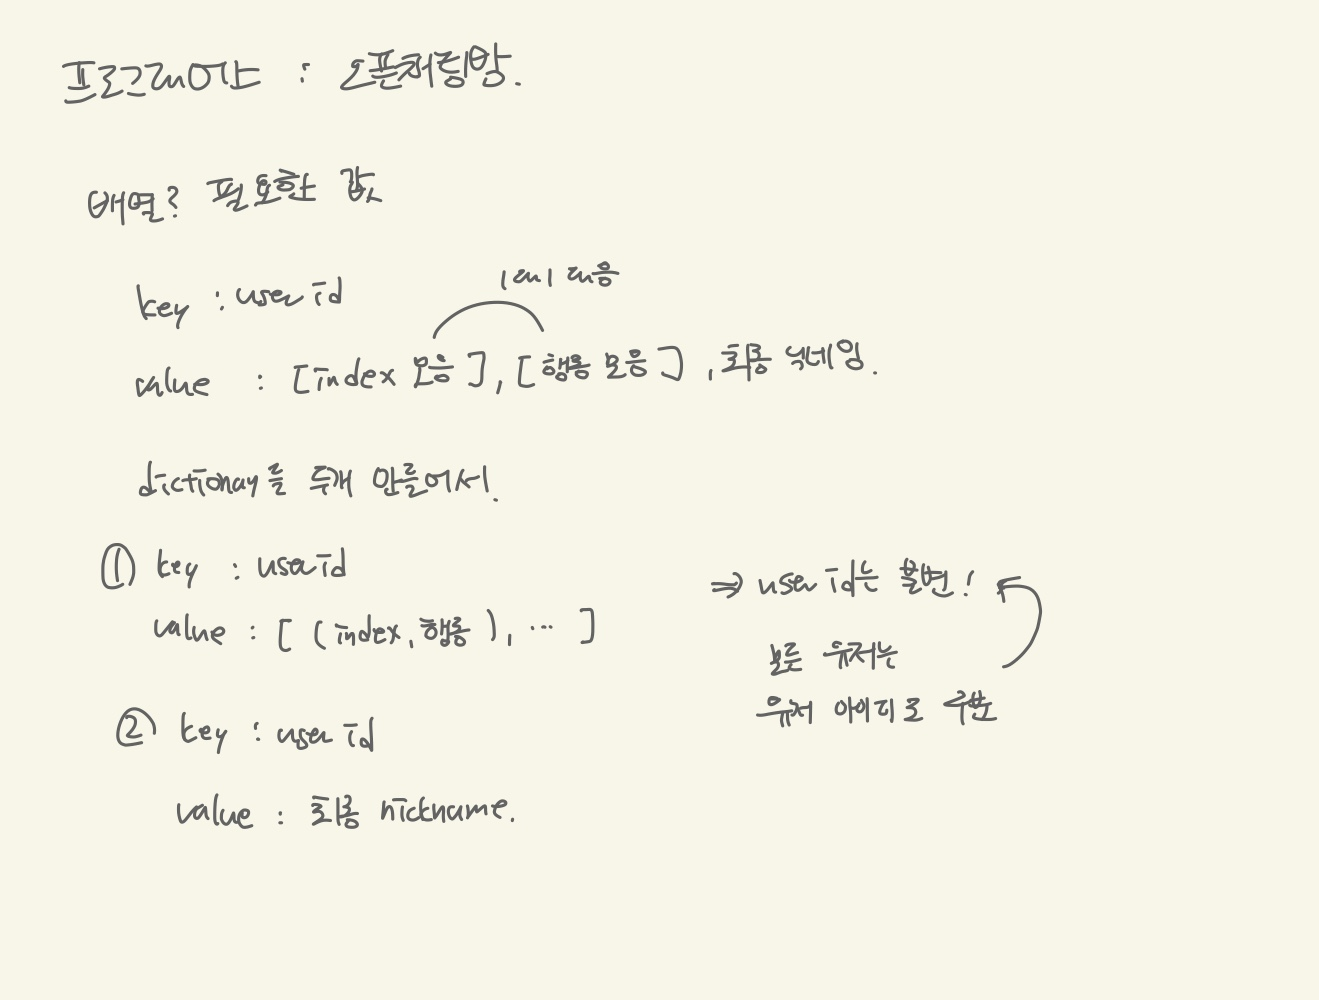 프로그래머스 : 오픈채팅방.
배열? 필요한 값
key : user id
1대1 대응
value : [index 모음], [행동 모음], 최종 닉네임.
dictionay를 두개 만들어서.
① key : userid
value : [ (index, 행동), ... ]
② key : user id
value : 최종 nickname.
⇒ user id는 불변!
모든 유저는
유저 아이디로 구분